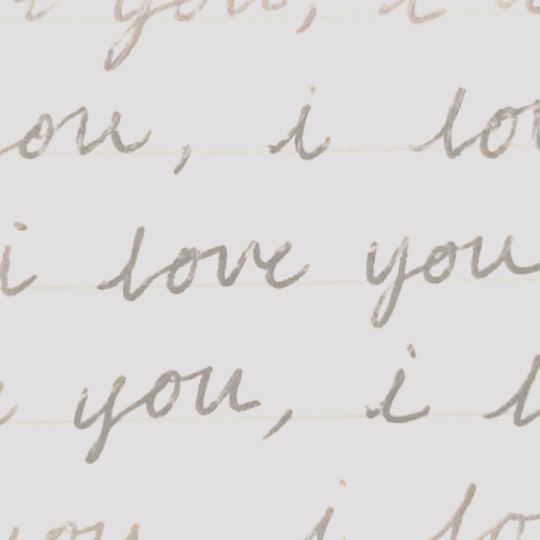 you, i
ou, i lo
i love you
you, i l
you i lo